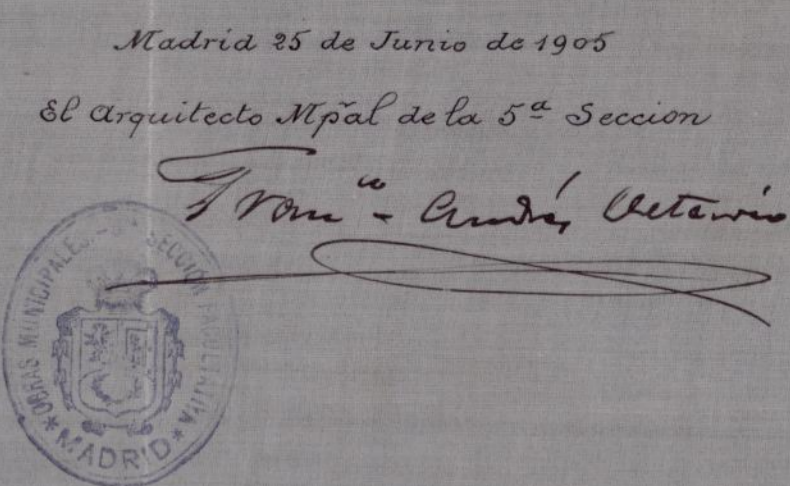 Madrid 25 de Junio de 1905
El Arquitecto Mpãl de la 5ª Seccion
Fran^co Andrés Octavio
OBRAS MUNICIPALES.- 5ª SECCION FACULTATIVA
* MADRID *